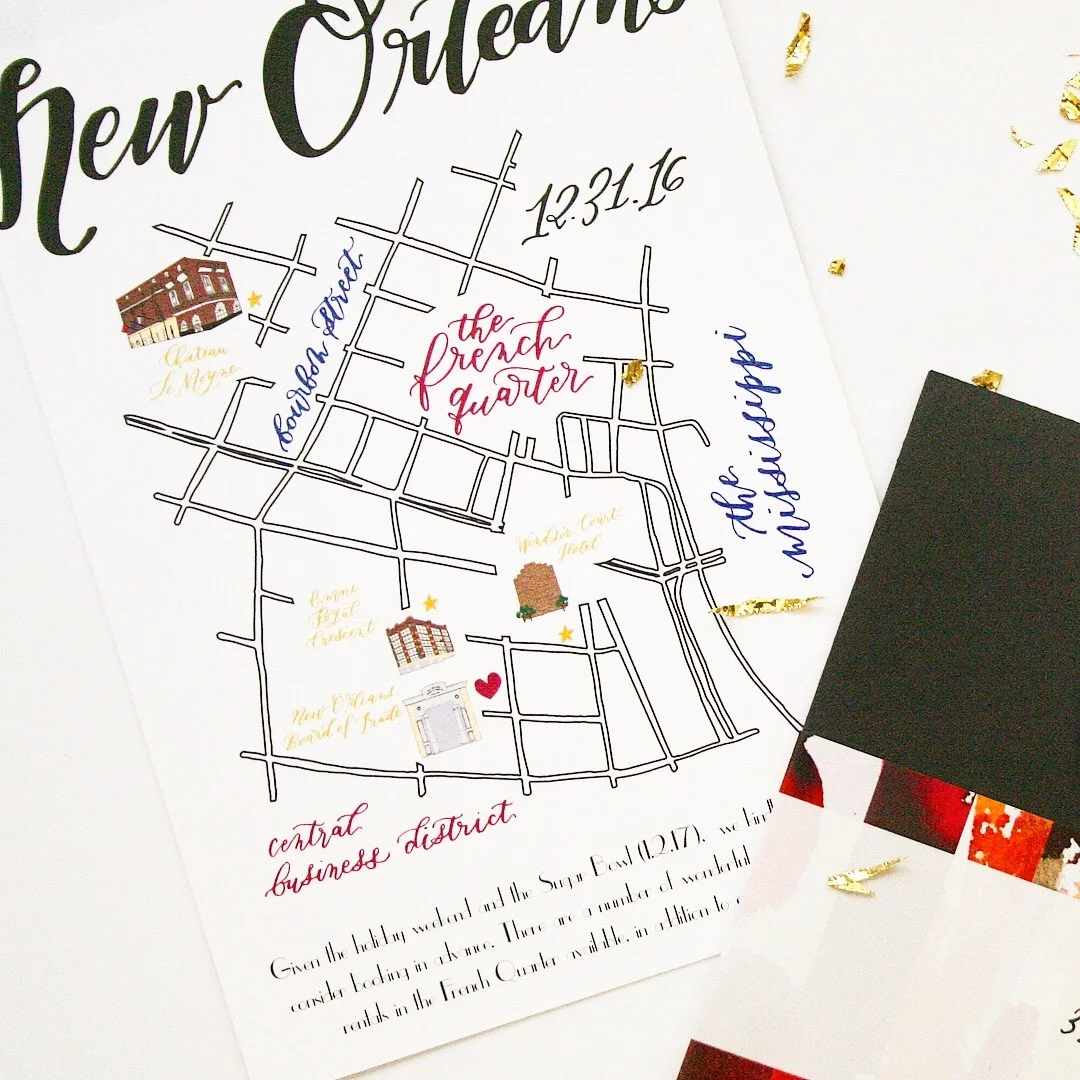 New Orleans
12.31.16
Chateau
Le Moyne
bourbon street
the
french
quarter
the
mississippi
Windsor Court
Hotel
Royal
Crescent
New Orleans
Board of Trade
central
business district
Given the holiday weekend and the Sugar Bowl (1.2.17), we
consider booking in advance. There are a number of wonderful
rentals in the French Quarter available, in addition to